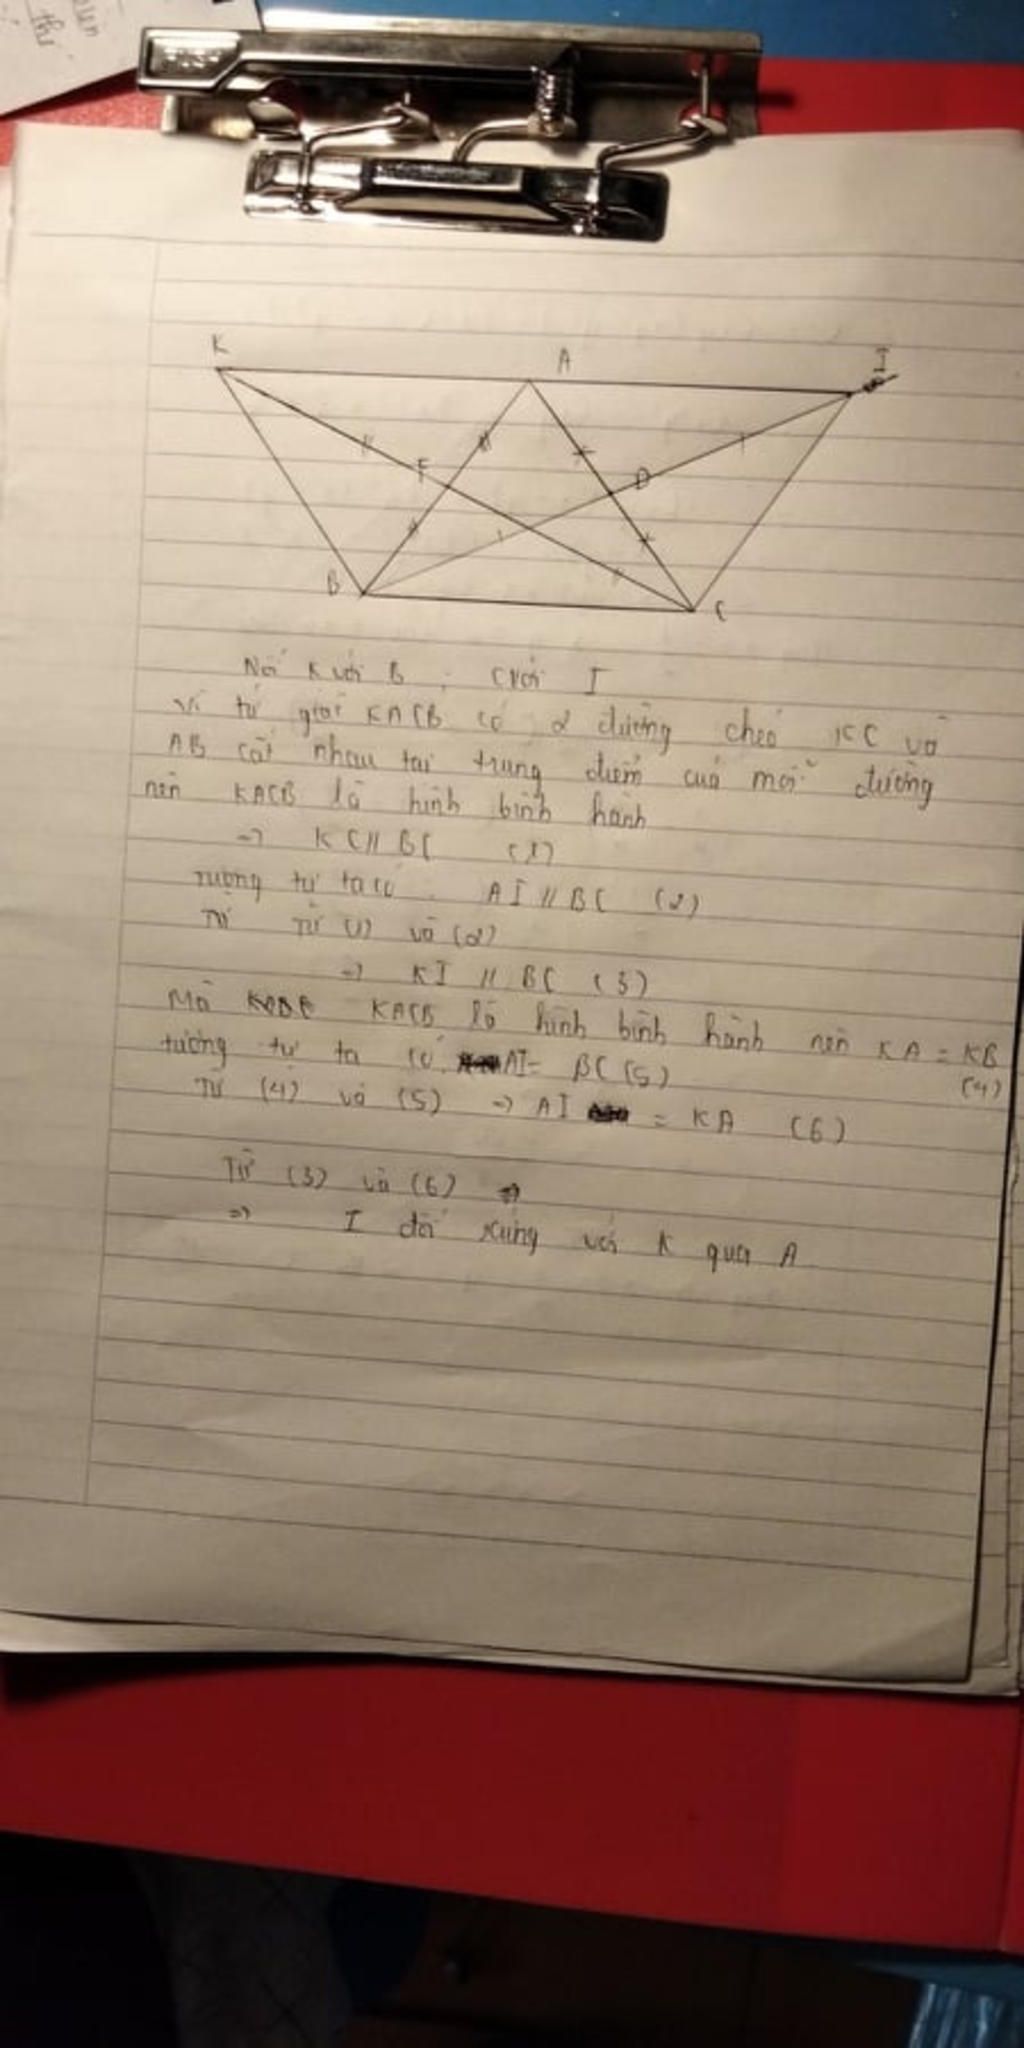 thi
K A I
F D
B C
Nối K với B ; C với I
Vì tứ giác KACB có 2 đường chéo KC và
AB cắt nhau tại trung điểm của mỗi đường
nên KACB là hình bình hành
=> KC // BC (1)
Tương tự ta có AI // BC (2)
Từ Từ (1) và (2)
=> KI // BC (3)
Mà KACB là hình bình hành nên KA = KB
(4)
tương tự ta có AI = BC (5)
Từ (4) và (5) => AI = KA (6)
Từ (3) và (6) =>
=> I đối xứng với K qua A